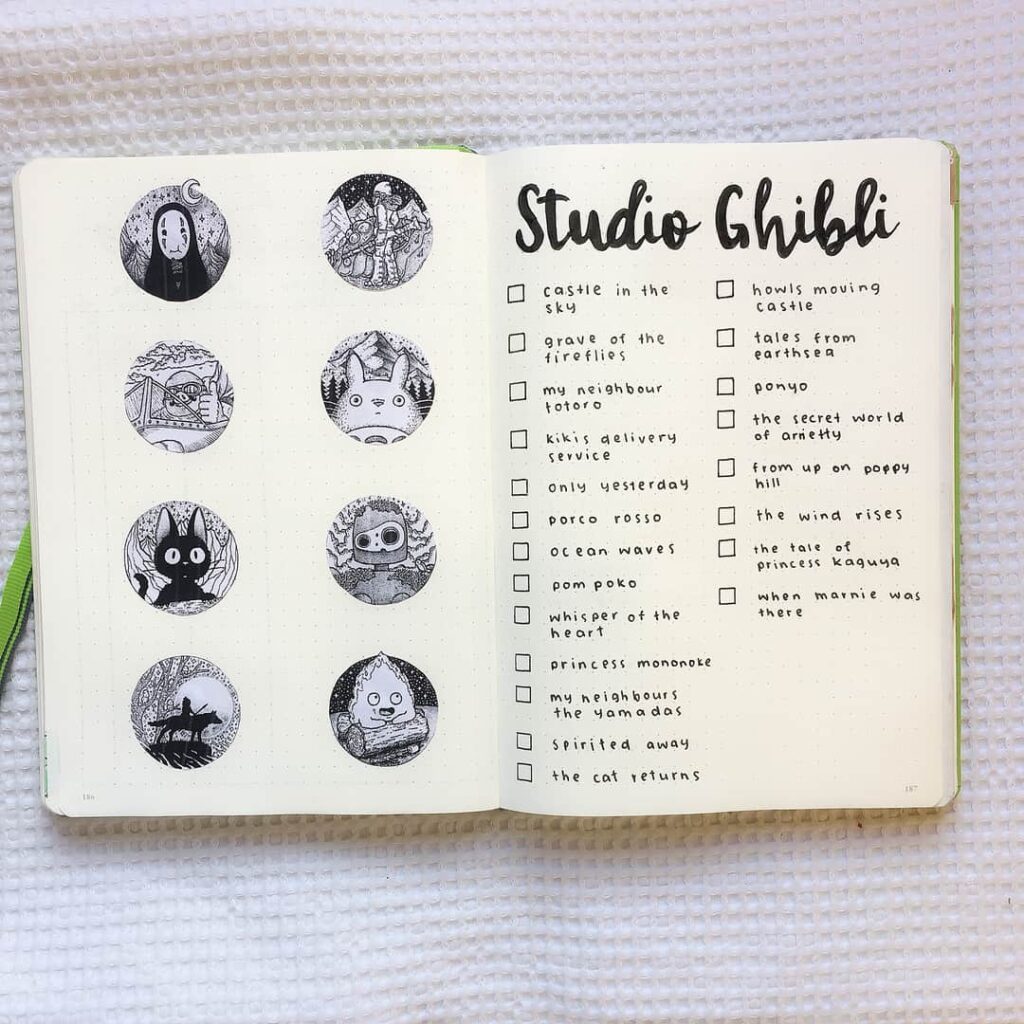 Studio Ghibli
castle in the
sky
grave of the
fireflies
my neighbour
totoro
kikis delivery
service
only yesterday
porco rosso
ocean waves
pom poko
whisper of the
heart
princess mononoke
my neighbours
the yamadas
spirited away
the cat returns
howls moving
castle
tales from
earthsea
ponyo
the secret world
of arrietty
from up on poppy
hill
the wind rises
the tale of
princess kaguya
when marnie was
there
186
187